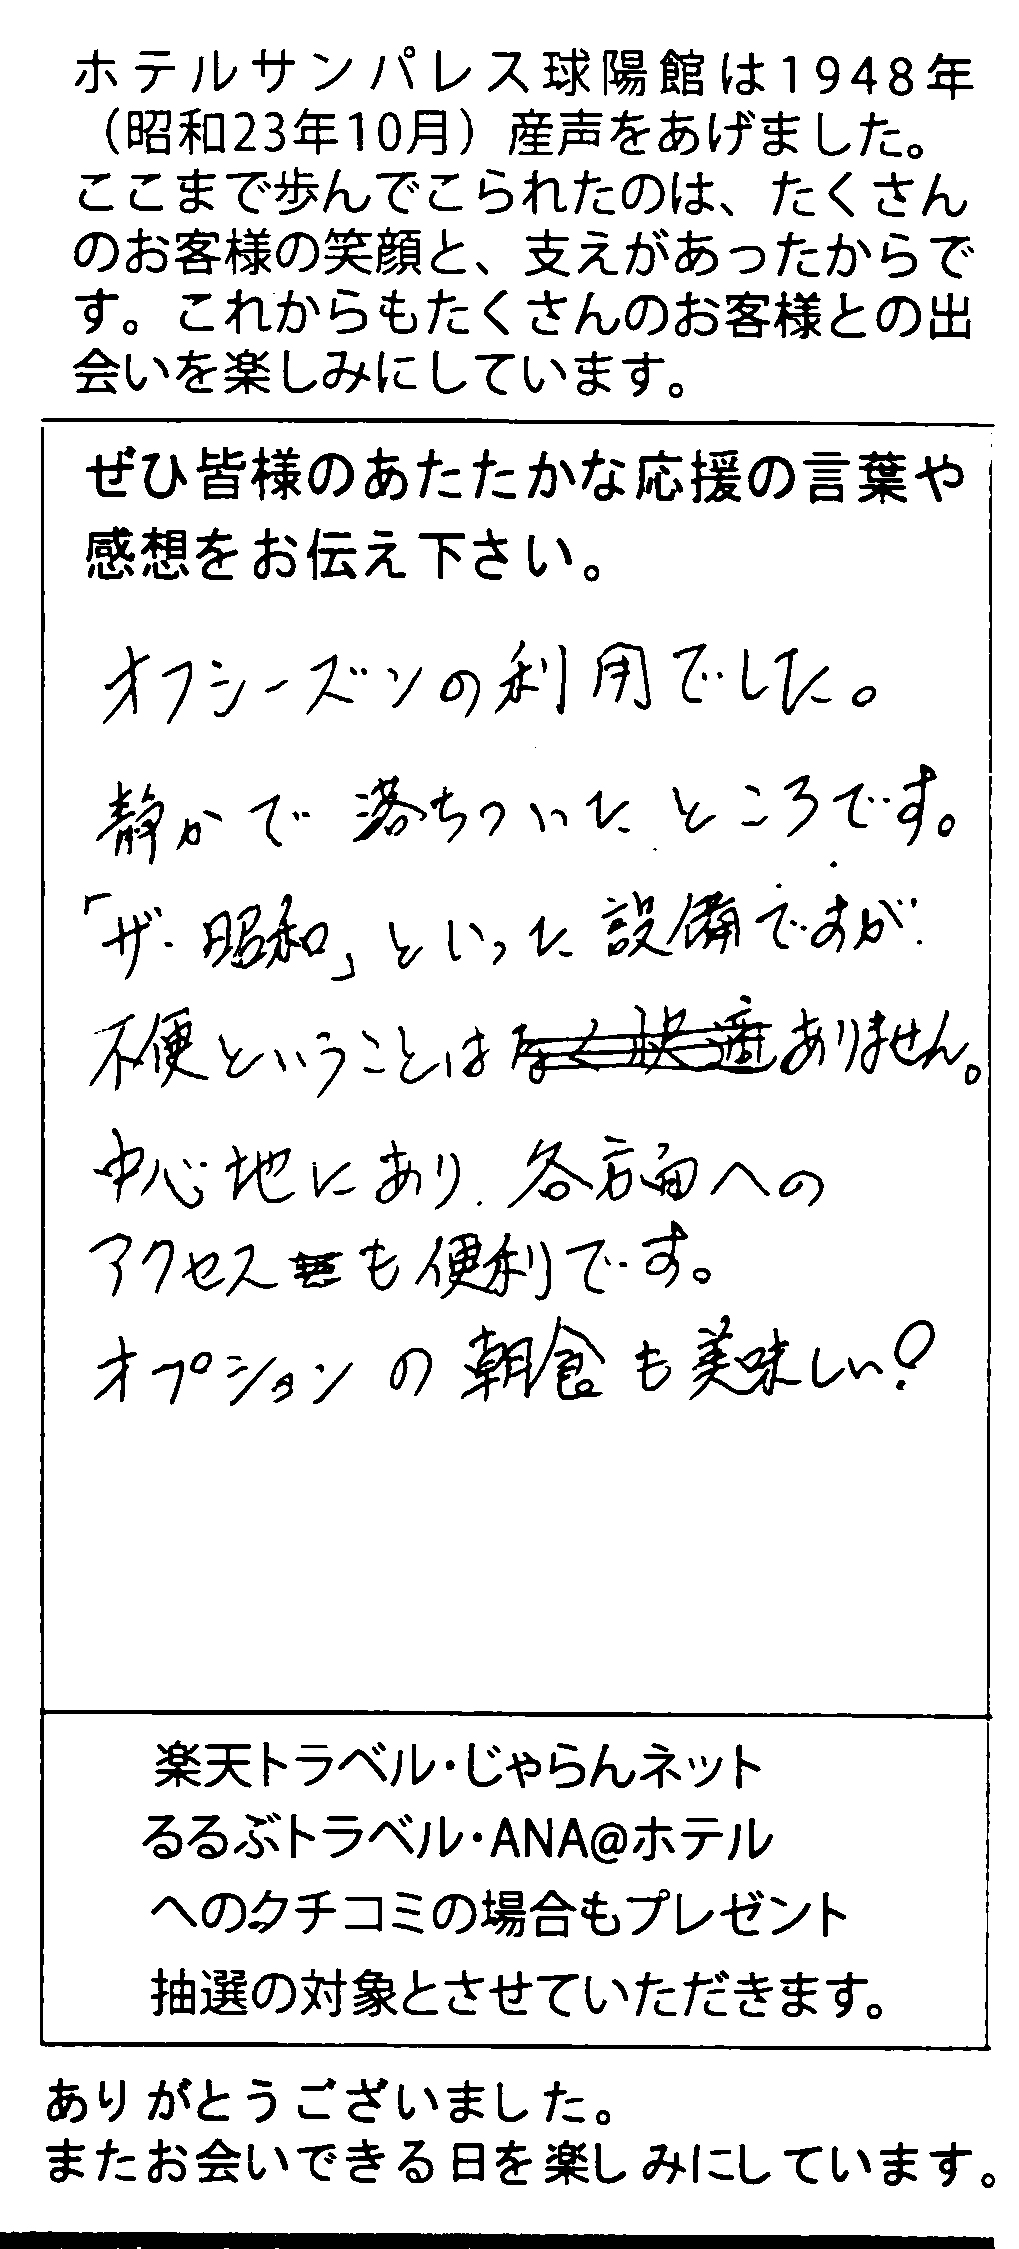 ホテルサンパレス球陽館は1948年
（昭和23年10月）産声をあげました。
ここまで歩んでこられたのは、たくさん
のお客様の笑顔と、支えがあったからで
す。これからもたくさんのお客様との出
会いを楽しみにしています。
ぜひ皆様のあたたかな応援の言葉や
感想をお伝え下さい。
オフシーズンの利用でした。
静かで落ちついたところです。
「ザ・昭和」といった設備ですが、
不便ということはなく快適ありません。
中心地にあり、各方面への
アクセスも便利です。
オプションの朝食も美味しい！
楽天トラベル・じゃらんネット
るるぶトラベル・ANA@ホテル
へのクチコミの場合もプレゼント
抽選の対象とさせていただきます。
ありがとうございました。
またお会いできる日を楽しみにしています。